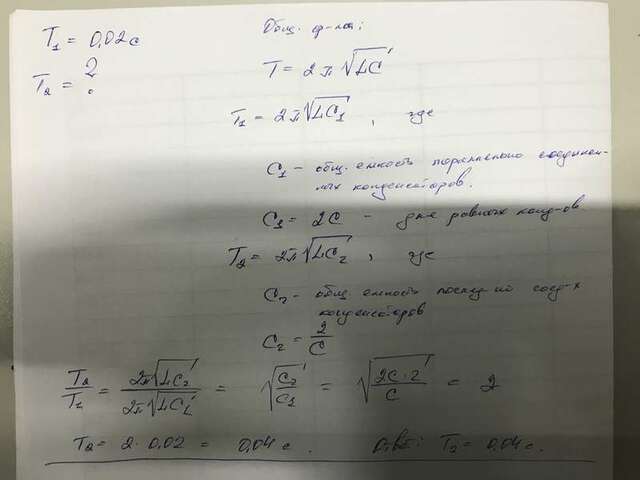 T₁ = 0,02 с
T₂ = ?
Общ. ф-ла:
T = 2π√LC
T₁ = 2π√LC₁ , где
C₁ – общ. емкость параллельно соединен-
ных конденсаторов.
C₁ = 2C – для равных конд-ов.
T₂ = 2π√LC₂ , где
C₂ – общ. емкость послед-но соед-х
конденсаторов
C₂ = 2/C
T₂/T₁ = 2π√LC₂ / 2π√LC₁ = √C₂/C₁ = √2C·2/C = 2
T₂ = 2·0,02 = 0,04 с. Ответ: T₂ = 0,04 с.